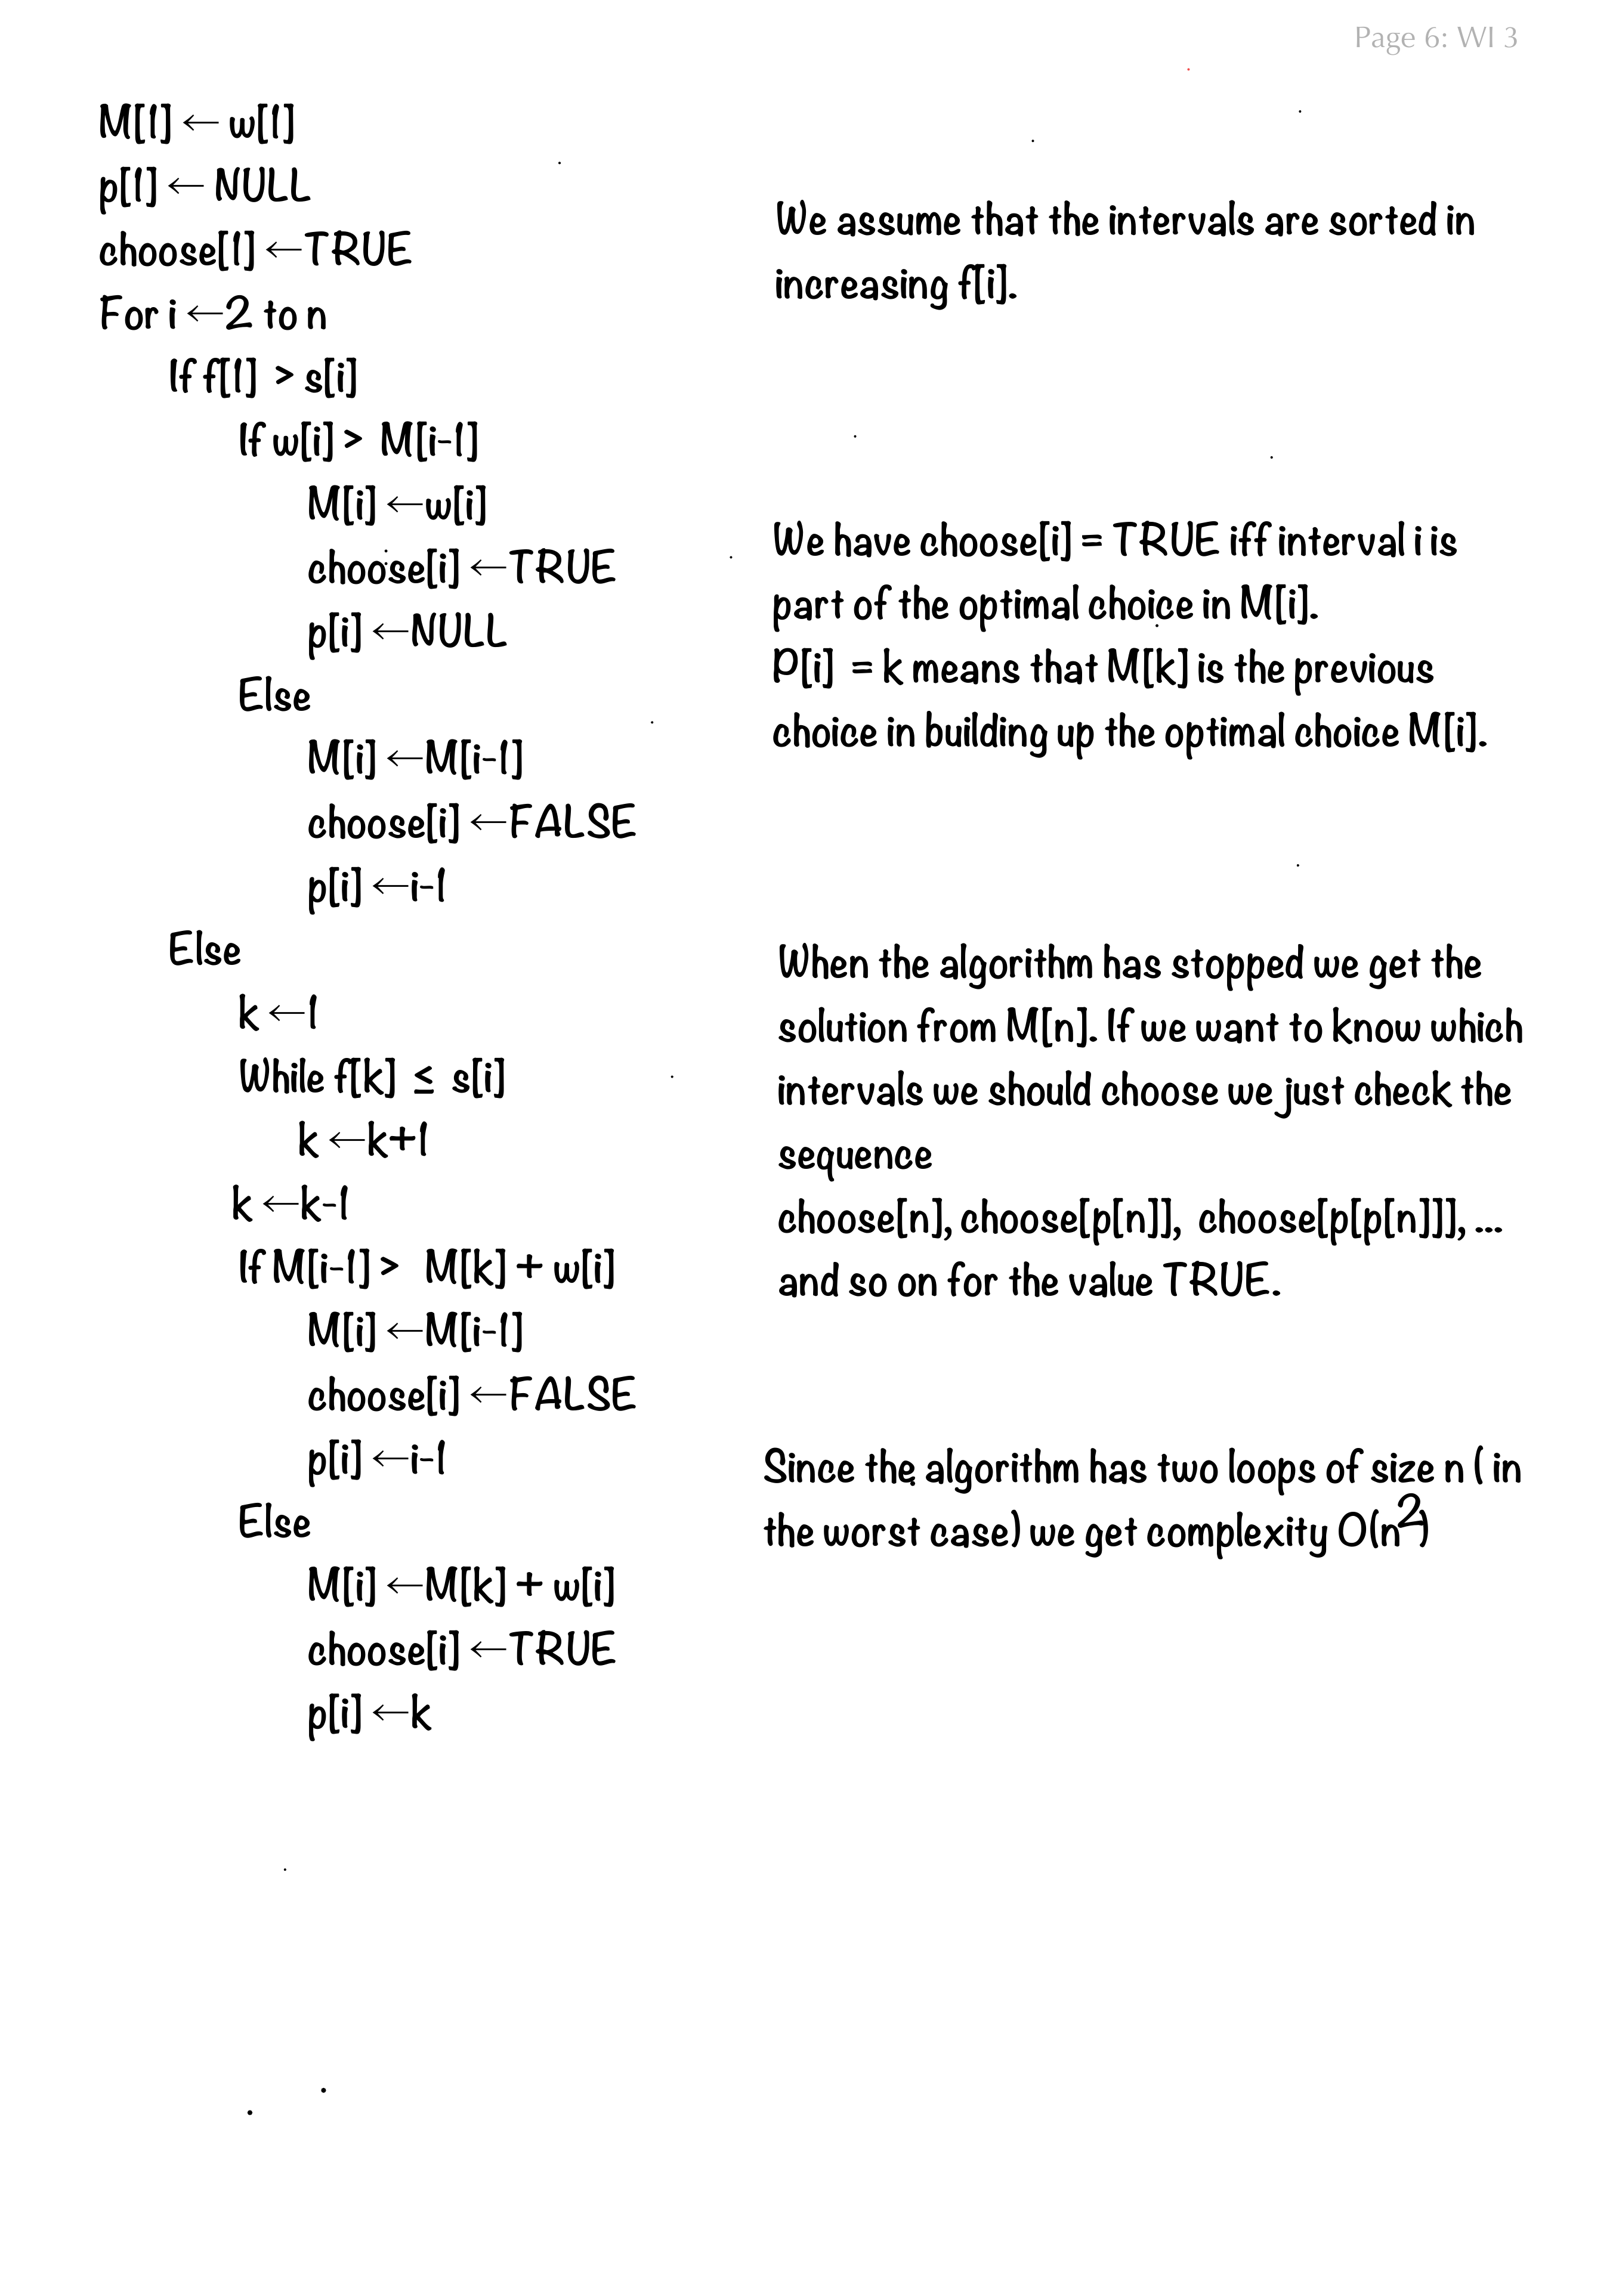 Page 6: WI 3
M[1] ← w[1]
p[1] ← NULL
choose[1] ← TRUE
For i ← 2 to n
If f[1] > s[i]
If w[i] > M[i-1]
M[i] ← w[i]
choose[i] ← TRUE
p[i] ← NULL
Else
M[i] ← M[i-1]
choose[i] ← FALSE
p[i] ← i-1
Else
k ← 1
While f[k] ≤ s[i]
k ← k+1
k ← k-1
If M[i-1] > M[k] + w[i]
M[i] ← M[i-1]
choose[i] ← FALSE
p[i] ← i-1
Else
M[i] ← M[k] + w[i]
choose[i] ← TRUE
p[i] ← k
We assume that the intervals are sorted in
increasing f[i].
We have choose[i] = TRUE iff interval i is
part of the optimal choice in M[i].
P[i] = k means that M[k] is the previous
choice in building up the optimal choice M[i].
When the algorithm has stopped we get the
solution from M[n]. If we want to know which
intervals we should choose we just check the
sequence
choose[n], choose[p[n]], choose[p[p[n]]], ...
and so on for the value TRUE.
Since the algorithm has two loops of size n ( in
the worst case) we get complexity O(n²)